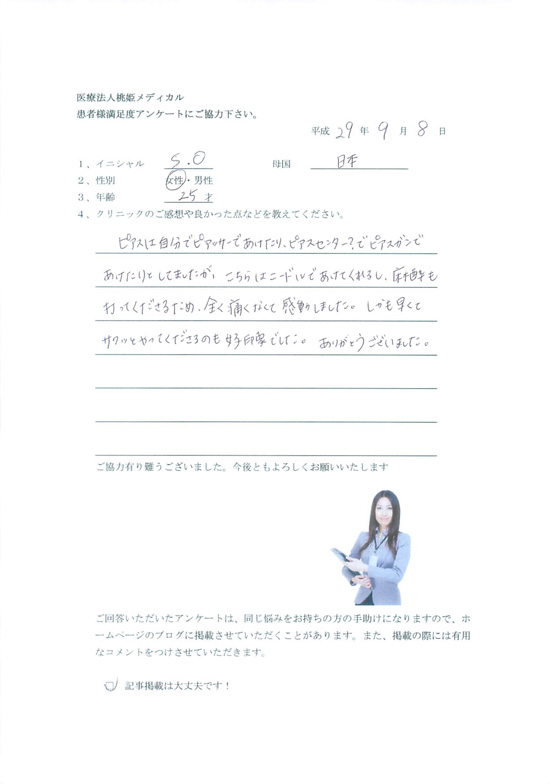 医療法人桃姫メディカル
患者様満足度アンケートにご協力下さい。
平成 29 年 9 月 8 日
1、イニシャル S.O 母国 日本
2、性別 女性・男性
3、年齢 25 才
4、クリニックのご感想や良かった点などを教えてください。
ピアスは自分でピアッサーであけたり、ピアスセンター?でピアスガンで
あけたりとしてましたが、こちらはニードルであけてくれるし、麻酔も
打ってくださるため、全く痛くなくて感動しました。しかも早くて
サクッとやってくださるのも好印象でした。ありがとうございました。
ご協力有り難うございました。今後ともよろしくお願いいたします
ご回答いただいたアンケートは、同じ悩みをお持ちの方の手助けになりますので、ホ
ームページのブログに掲載させていただくことがあります。また、掲載の際には有用
なコメントをつけさせていただきます。
記事掲載は大丈夫です！